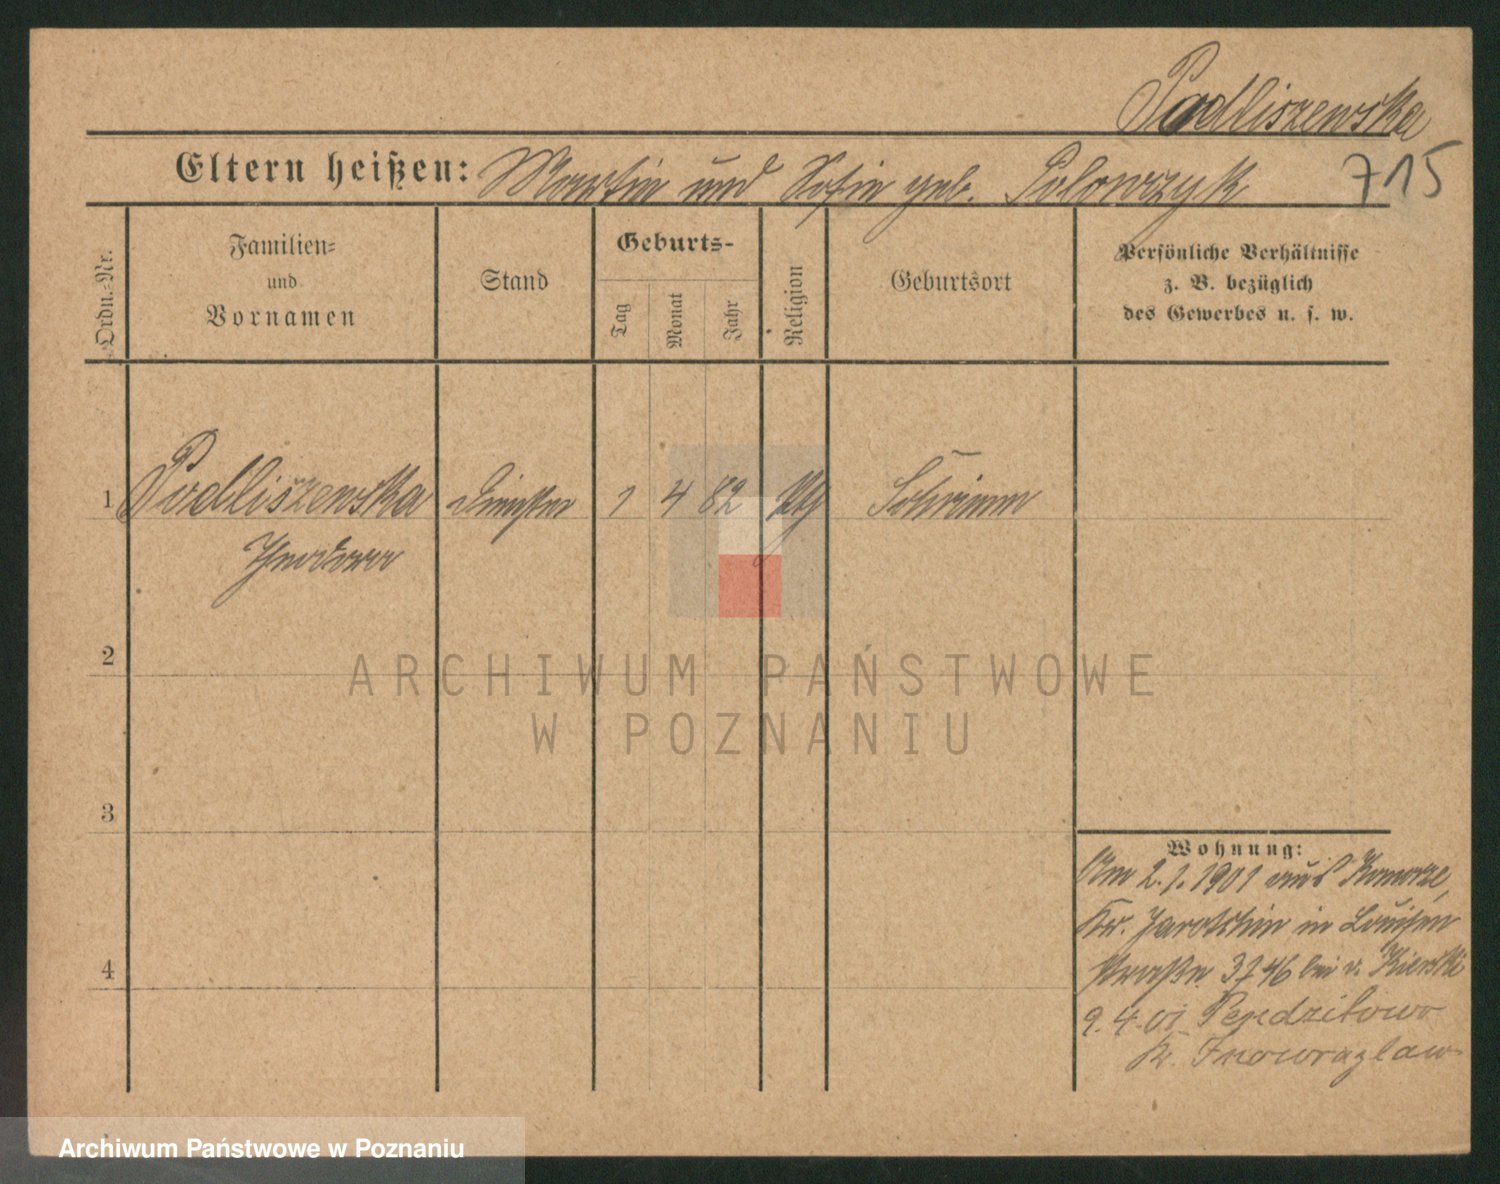 Podliszewska
Eltern heißen: Martin und Sofie geb. Polowczyk
715
Ordn.-Nr.
Familien-
und
Vornamen
Stand
Geburts-
Tag
Monat
Jahr
Religion
Geburtsort
Persönliche Verhältnisse
z. B. bezüglich
des Gewerbes u. s. w.
1 Podliszewska 1 4 82 Schrimm
Theodora
2
3
4
Wohnung:
Am 2.1.1901 aus Komorze,
Kr. Jarotschin in Louisen
straße 3746 bei v. Kierski
9.4.01
Kr. Inowrazlaw
ARCHIWUM PAŃSTWOWE
W POZNANIU
Archiwum Państwowe w Poznaniu